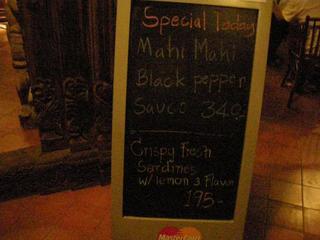 Special Today
Mahi Mahi
Black pepper
Sauce 340-
Crispy Fresh
Sardines
w/ lemon 3 Flavor
195-
MasterCard